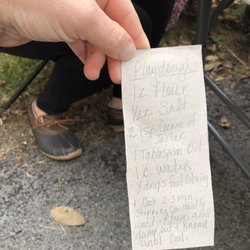 Playdough:
1c flour
1/2c Salt
2 tsp. Cream of
Tarter
1 Tabaspoon Oil
1c Water
8 drops food
* Cook 2-3 min
Stirring constantly
until
dump out + knead
until Cool.